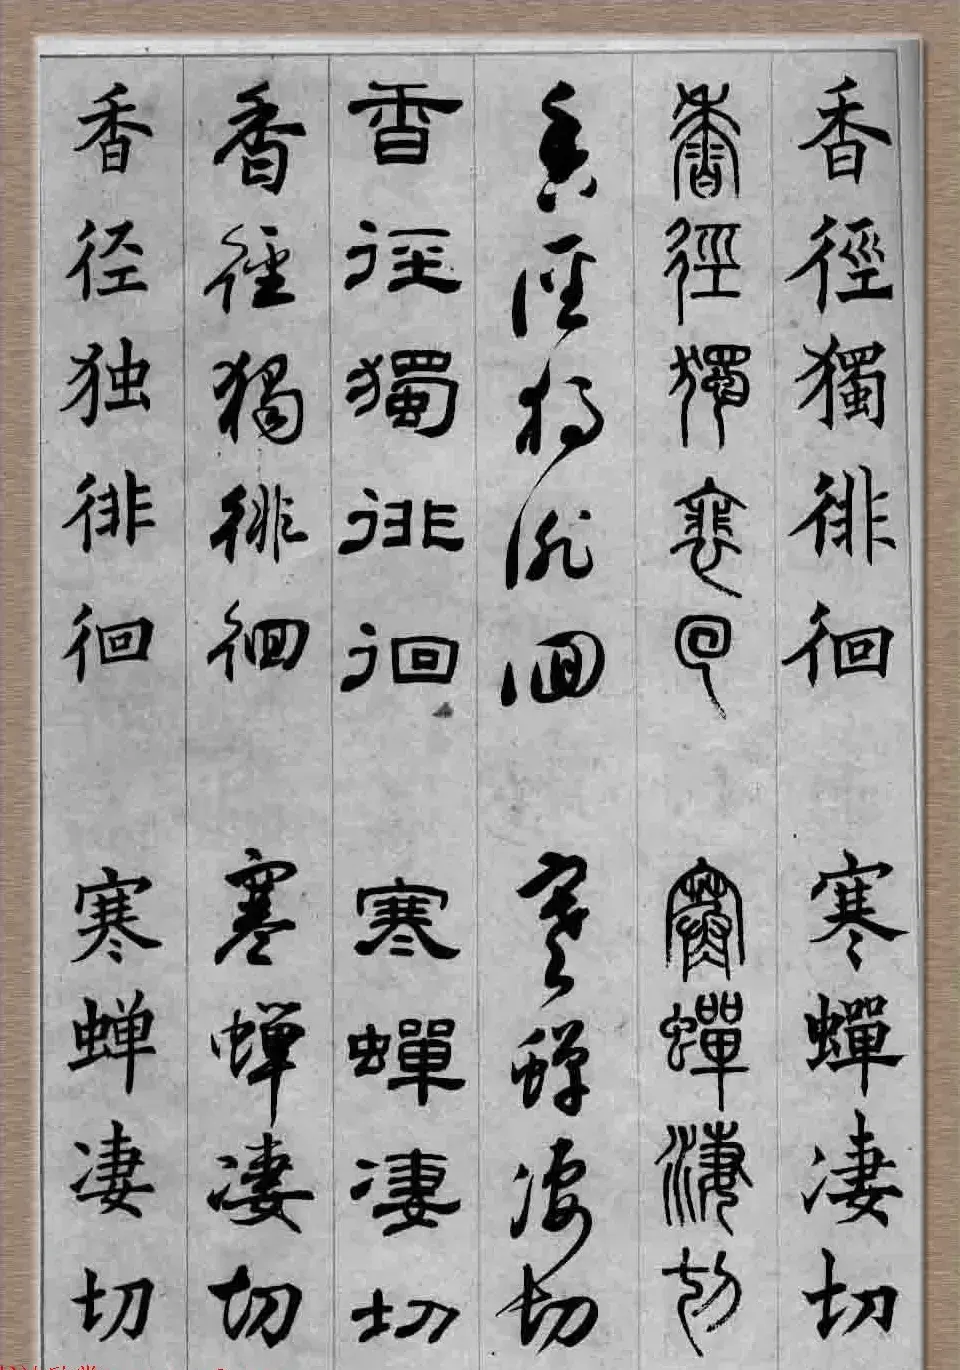 香徑獨徘徊 寒蟬淒切
香徑獨徘徊 寒蟬淒切
香徑獨徘徊 寒蟬淒切
香徑獨徘徊 寒蟬淒切
香徑獨徘徊 寒蟬淒切
香径独徘徊 寒蝉凄切